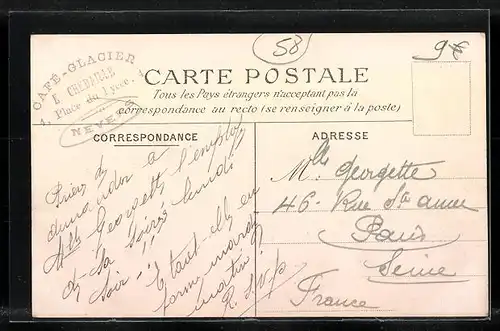 CAFÉ-GLACIER
E. CHERAULT
4, Place du Lycée, 4
NEVERS
58
9€
CARTE POSTALE
Tous les Pays étrangers n'acceptent pas la
correspondance au recto (se renseigner à la poste)
CORRESPONDANCE
ADRESSE
Prière de
demander à
Mlle Georgette l'emploi
de sa soirée lundi
soir
Était-elle en
forme mardi
matin?
R.S.V.P.
Mlle Georgette
46 - Rue Ste anne
Paris
Seine
France